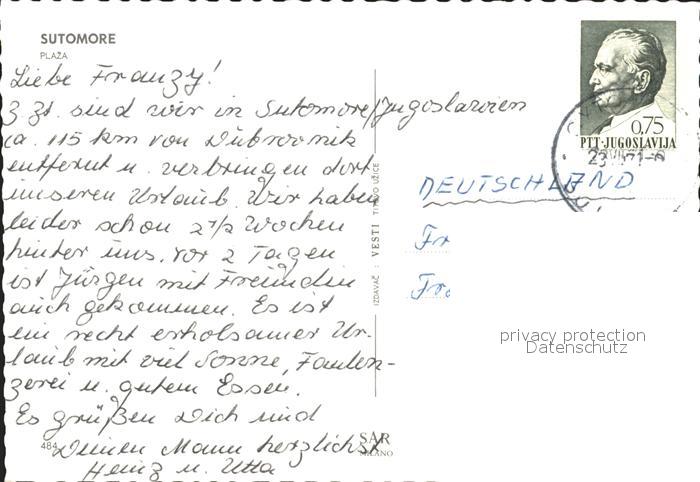 SUTOMORE
PLAŽA
Liebe Franzy!
z Zt. sind wir in Sutomore/Jugoslawien
ca. 115 km von Dubrovnik
entfernt u. verbringen dort
unseren Urlaub. Wir haben
leider schon 2 1/2 Wochen
hinter uns. Vor 2 Tagen
ist Jürgen mit Freundin
auch gekommen. Es ist
ein recht erholsamer Ur-
laub mit viel Sonne, Faulen-
zerei u. gutem Essen.
Es grüßen Dich und
Deinen Mann herzlichst
Heinz u. Utta
484
IZDAVAČ: VESTI TITOVO UŽICE
SAR
MILANO
0,75
PTT-JUGOSLAVIJA
DEUTSCHLAND
Fr
Fr.
privacy protection
Datenschutz